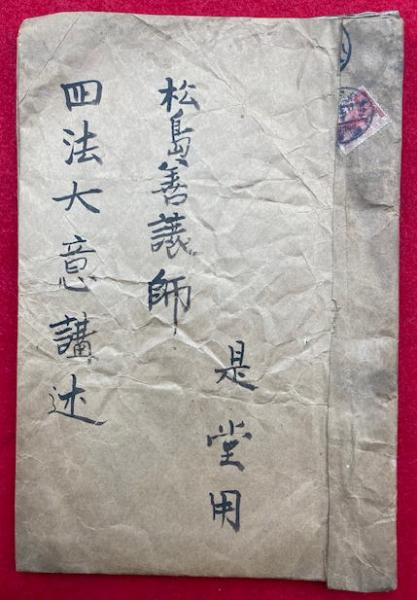 是堂用
松島善譲師
四法大意講述